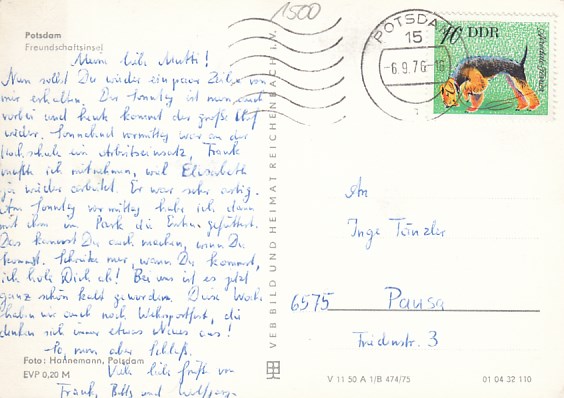 1500
Potsdam
Freundschaftsinsel
Meine liebe Mutti!
Nun sollst Du wieder ein paar Zeilen von
mir erhalten. Der Sonntag ist nun auch
vorbei und heute kommt das große
wieder. Sonnabend vormittag war an der
Hochschule ein Arbeitseinsatz, Frank
mußte ich mitnehmen, weil Elisabeth
ja wieder arbeitet. Er war sehr artig.
Am Sonntag vormittag habe ich dann
mit ihm im Park die Enten gefüttert.
Das kannst Du auch machen, wenn Du
kommst. Schreibe mir, wann Du kommst,
ich hole Dich ab! Bei uns ist es jetzt
ganz schön kalt geworden. Diese Woche
haben wir auch noch Wehrsportfest, die
denken sich immer etwas Neues aus!
So, nun aber Schluß.
Viele liebe Grüße von
Frank, und Wolfgang
Foto: Hannemann, Potsdam
EVP 0,20 M
VEB BILD UND HEIMAT REICHENBACH i. V.
POTSDAM
15
-6.9.76-18
10 DDR
An
Inge Tänzler
6575 Pausa
Friedenstr. 3
V 11 50 A 1/B 474/75
01 04 32 110